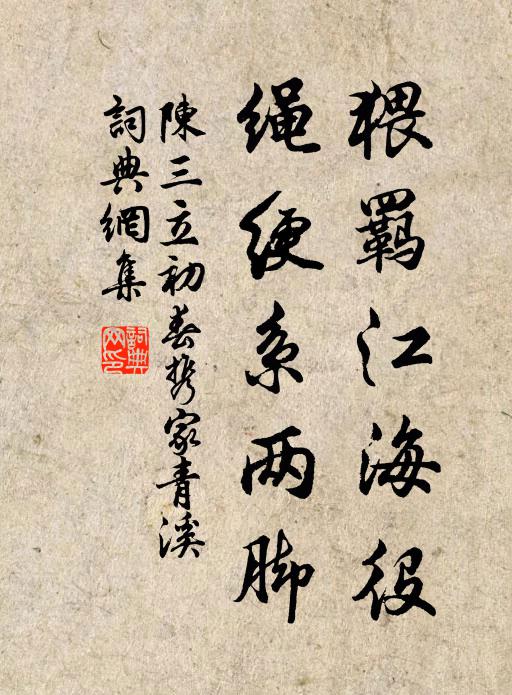 猥羁江海役
绳绠系两脚
陳三立初春携家青溪
詞典網集
詞典网印